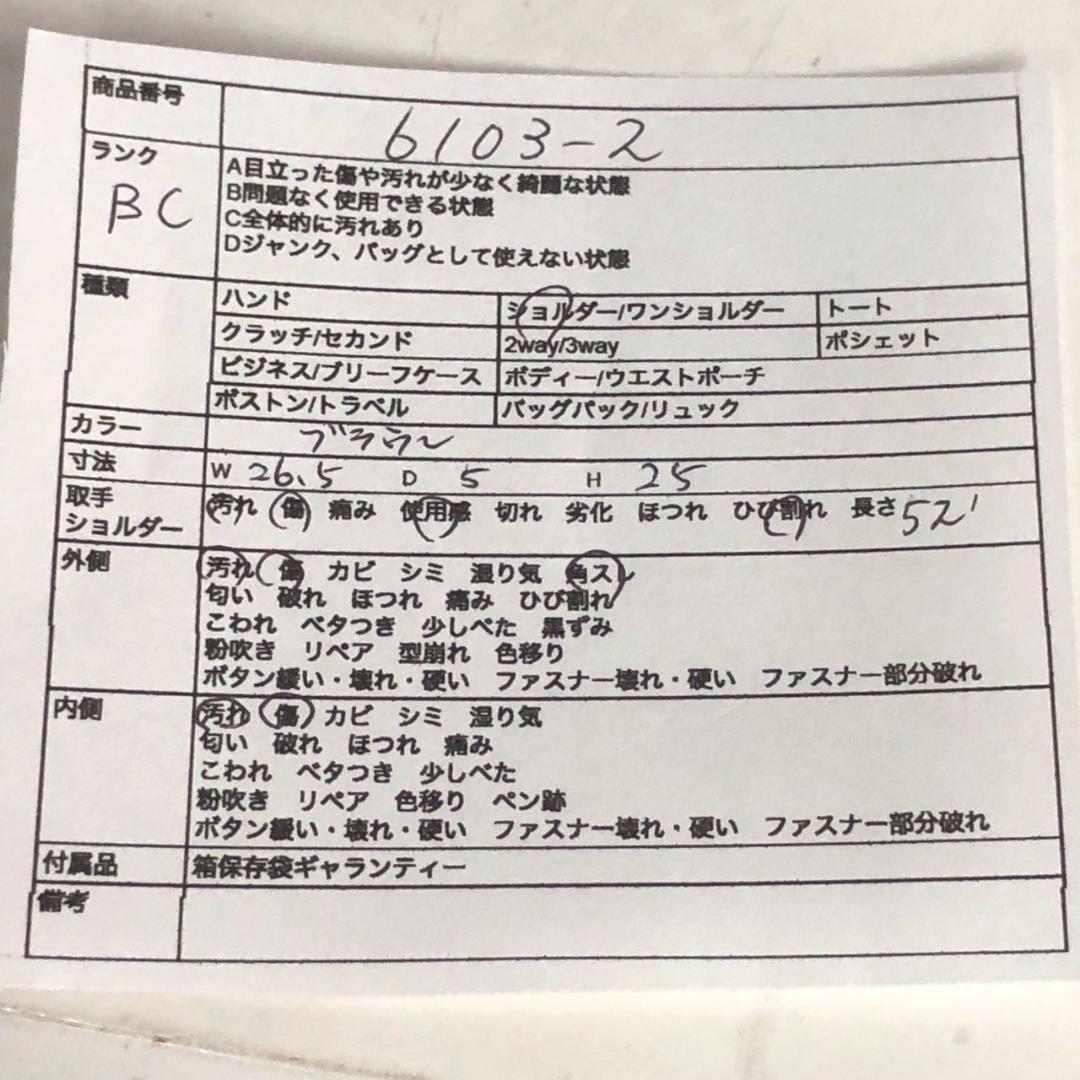 商品番号 6103-2
ランク BC
A目立った傷や汚れが少なく綺麗な状態
B問題なく使用できる状態
C全体的に汚れあり
Dジャンク、バッグとして使えない状態
種類 ハンド ショルダー/ワンショルダー トート
クラッチ/セカンド 2way/3way ポシェット
ビジネス/ブリーフケース ボディー/ウエストポーチ
ボストン/トラベル バッグパック/リュック
カラー ブラウン
寸法 W 26.5 D 5 H 25
取手 汚れ 傷 痛み 使用感 切れ 劣化 ほつれ ひび割れ 長さ 52
ショルダー
外側 汚れ 傷 カビ シミ 湿り気 角スレ
匂い 破れ ほつれ 痛み ひび割れ
こわれ ベタつき 少しべた 黒ずみ
粉吹き リペア 型崩れ 色移り
ボタン緩い・壊れ・硬い ファスナー壊れ・硬い ファスナー部分破れ
内側 汚れ 傷 カビ シミ 湿り気
匂い 破れ ほつれ 痛み
こわれ ベタつき 少しべた
粉吹き リペア 色移り ペン跡
ボタン緩い・壊れ・硬い ファスナー壊れ・硬い ファスナー部分破れ
付属品 箱保存袋ギャランティー
備考